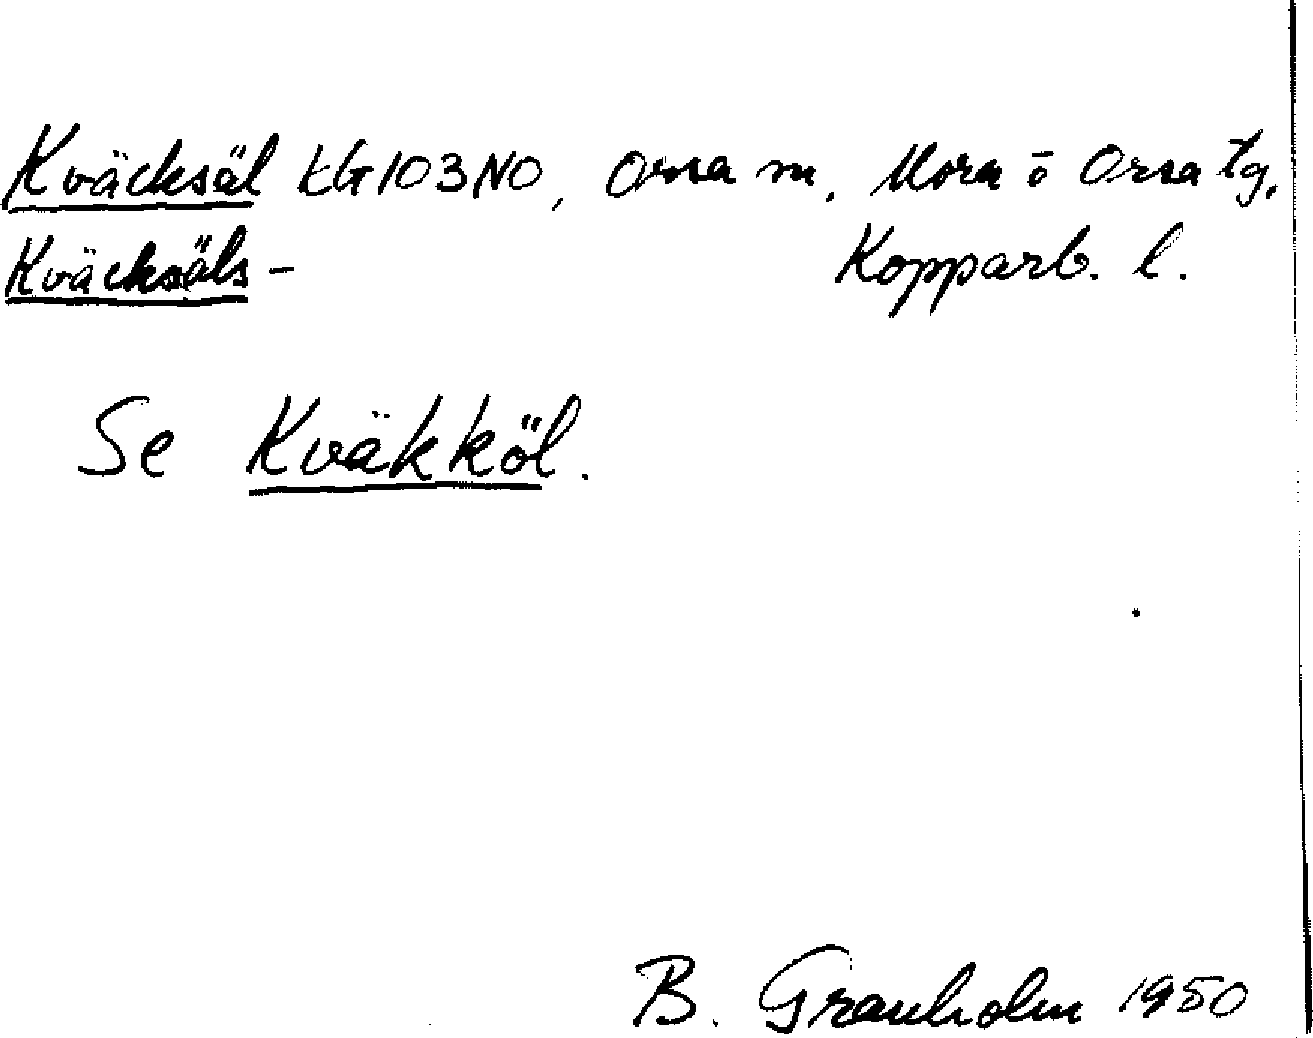 Kväcksäl KG103NO, Orsa sn, Mora o Orsa tg,
Kväcksäls- Kopparb. l.
Se Kväkköl.
B. Granholm 1950